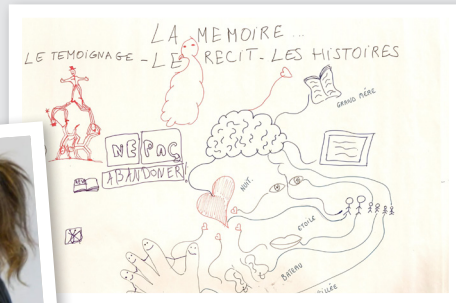 LA MEMOIRE...
LE TEMOIGNAGE - LE RECIT - LES HISTOIRES
GRAND MÈRE
NE PAS
ABANDONER
NUIT
ETOILE
BATEAU